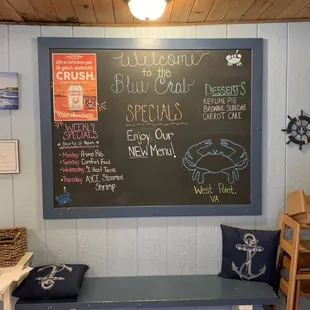 Welcome
to the
Blue Crab
SPECIALS
Enjoy Our
NEW Menu!
CRUSH.
WEEKLY
SPECIALS
Monday
Tuesday Comfort Food
Wednesday
Thursday AYCE Steamed
Shrimp
DESSERTS
KEYLIME PIE
BROWNIE SUNDAE
CARROT CAKE
West Point,
VA